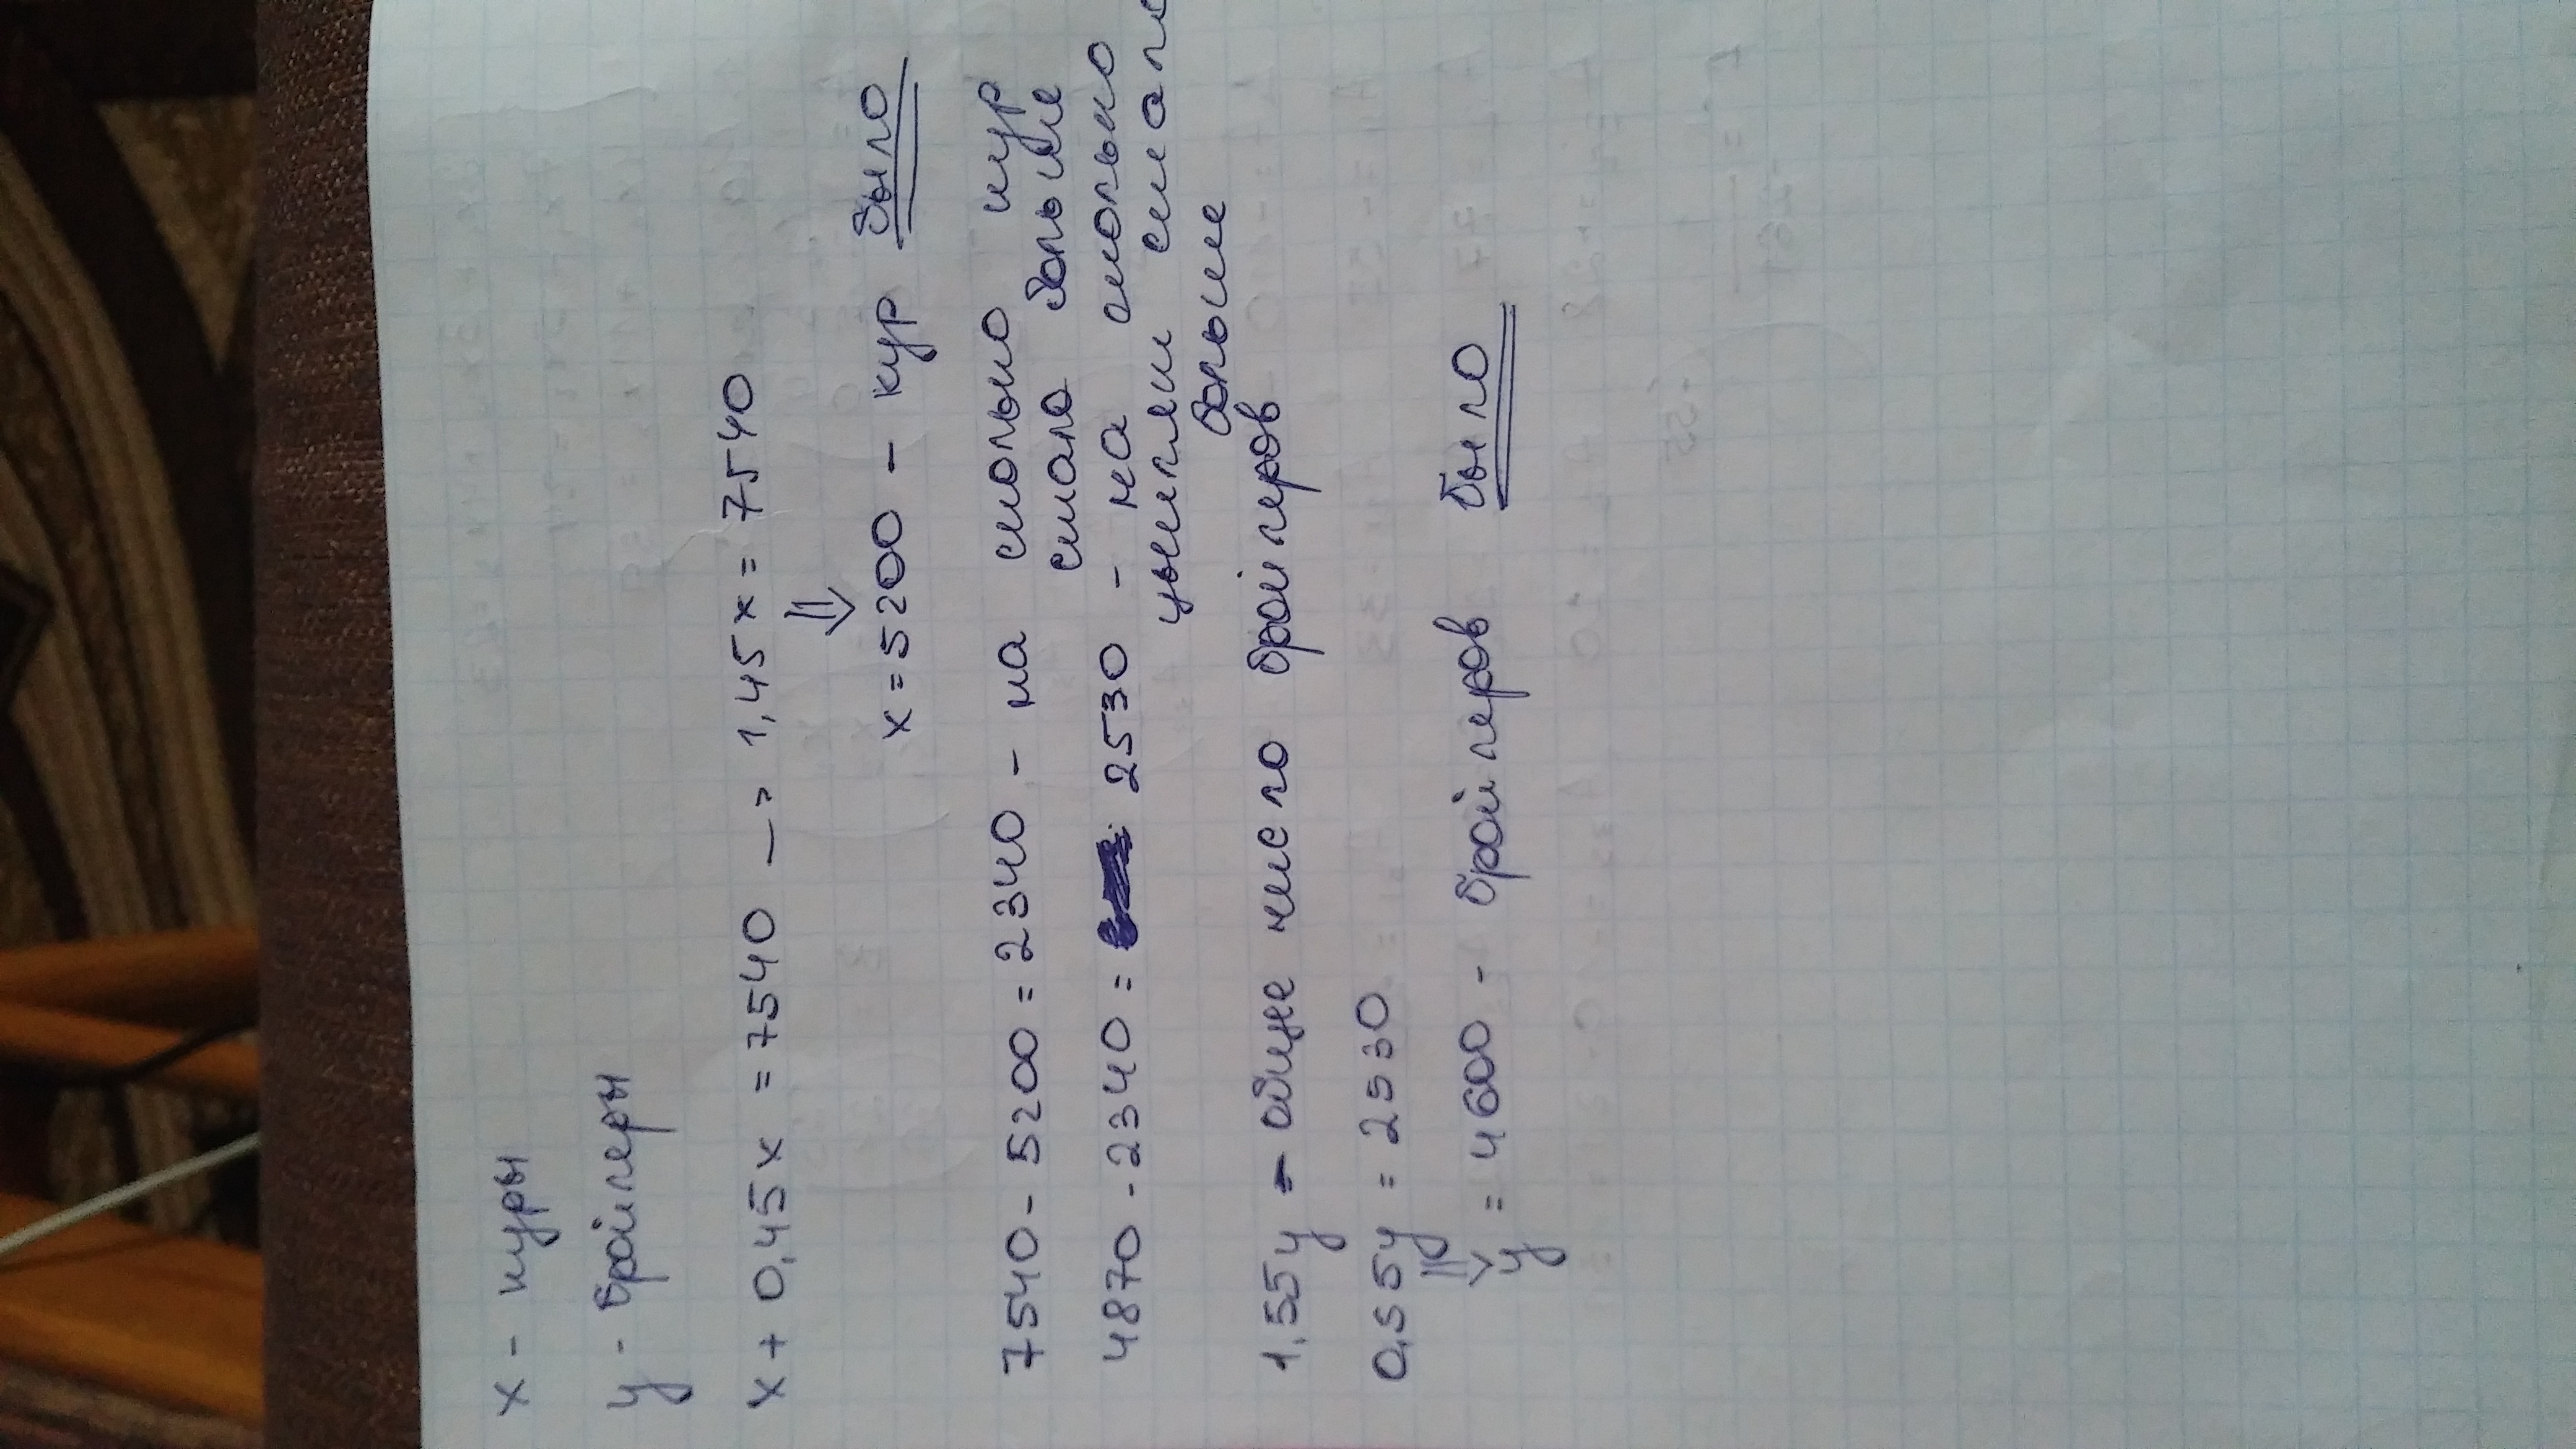 x - куры
y - бройлеры
x + 0,45x = 7540 —> 1,45x = 7540
⇓
x = 5200 - кур было
7540 - 5200 = 2340 - на сколько кур
стало больше
4870 - 2340 = 2530 - на сколько
цыплят стало
больше
1,55y - общее число бройлеров
0,55y = 2530
⇓
y = 4600 - бройлеров было